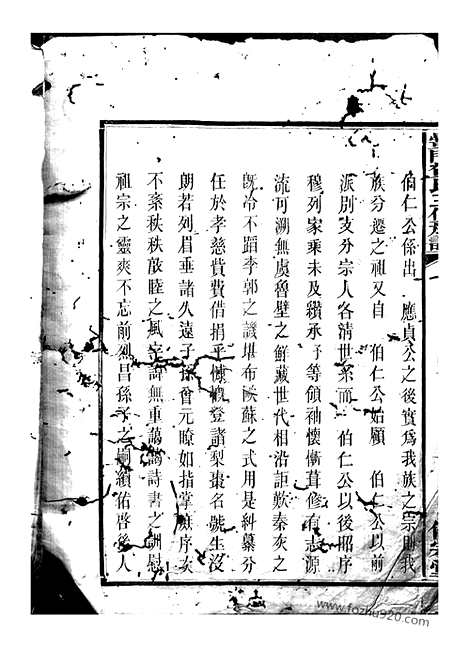 伯仁公係出　應貞公之後實為我族之一宗則我
族分遷之祖又自　伯仁公始顧　伯仁公以前
派別支分宗人各清世系而　伯仁公以後昭序
穆列家乘未及纘承予等領袖懷慚葺修有志源
流可溯無虞魯壁之鮮藏世代相沿詎歎秦灰之
既冷不蹈李郭之譏堪布歐蘇之式用是糾慕分
任於孝慈費費借捐乎慷慨登諸梨棗名號生沒
朗若列眉垂諸久遠子孫曾元瞭如指掌庶序次
不紊秩秩敦睦之風字諱無重藹藹詩書之
慰
祖宗之靈爽不忘前烈昌孫子之
續佑啟後人
www.fozhu920.com